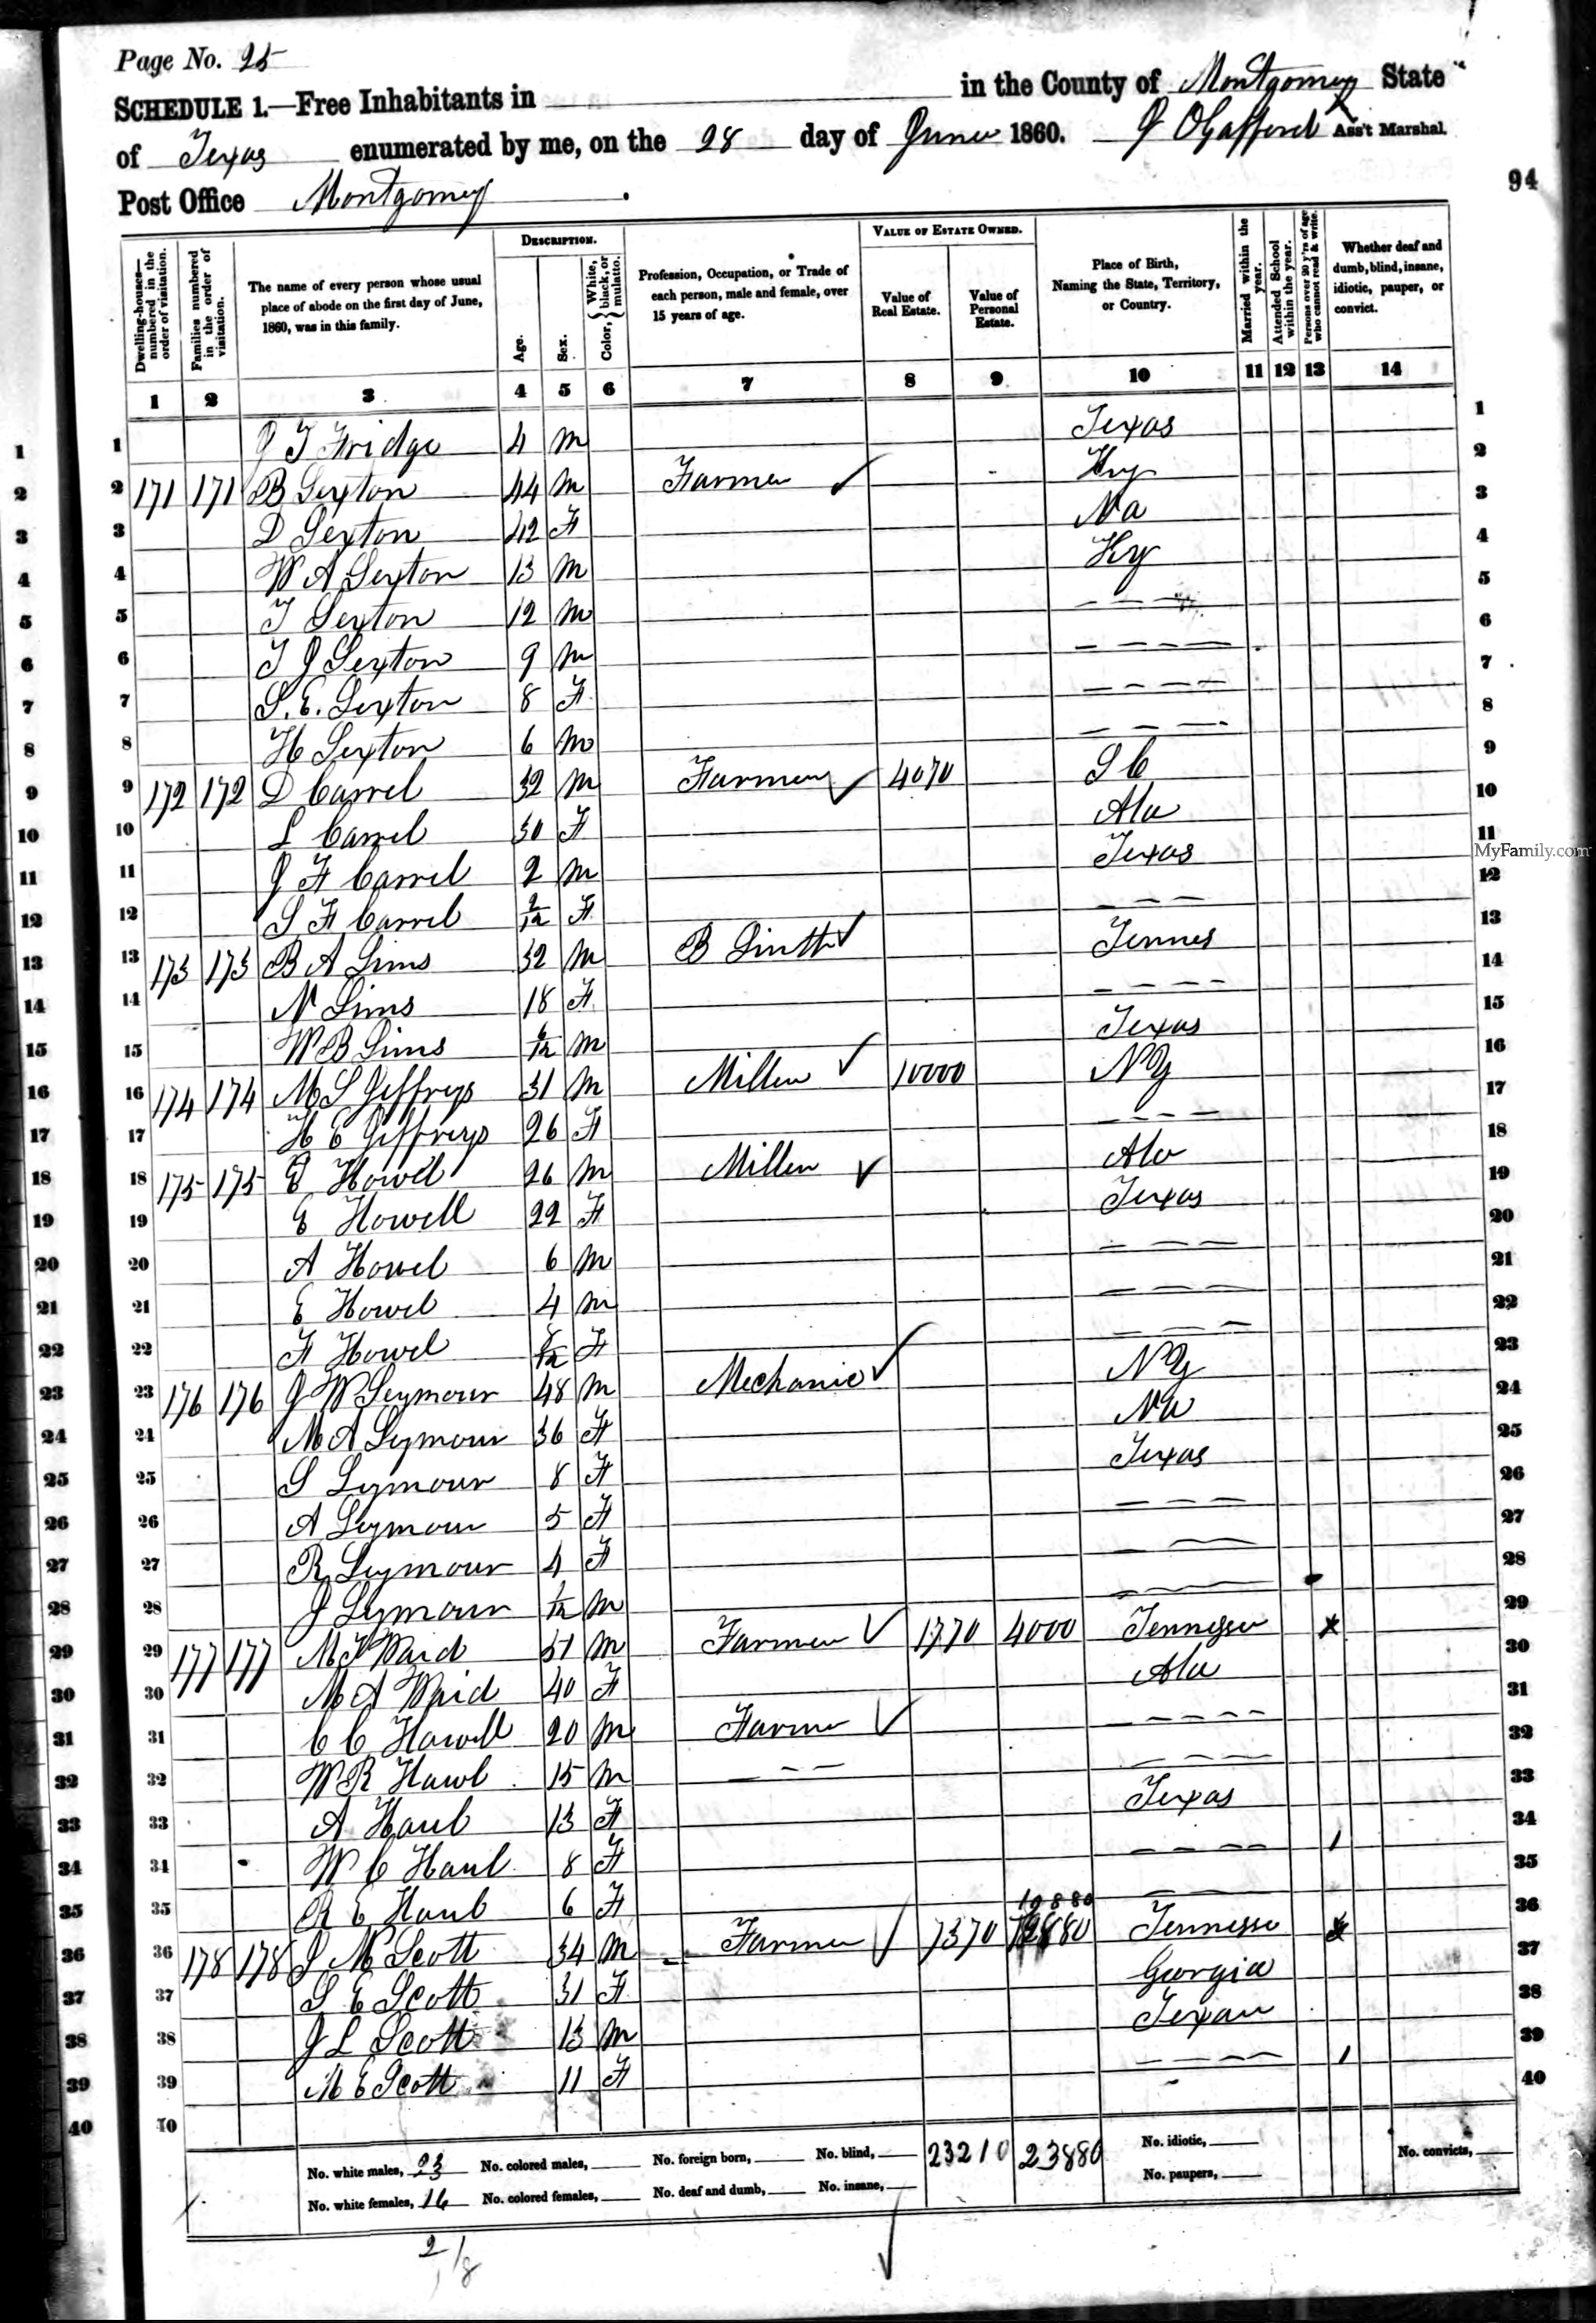 Page No. 25
SCHEDULE 1.—Free Inhabitants in in the County of Montgomery State
of Texas enumerated by me, on the 28 day of June 1860. Ass't Marshal.
Post Office Montgomery
94
DESCRIPTION. VALUE OF ESTATE OWNED.
Dwelling-houses—numbered in the order of visitation. Families numbered in the order of visitation. The name of every person whose usual place of abode on the first day of June, 1860, was in this family. Age. Sex. Color, { White, black, or mulatto. Profession, Occupation, or Trade of each person, male and female, over 15 years of age. Value of Real Estate. Value of Personal Estate. Place of Birth, Naming the State, Territory, or Country. Married within the year. Attended School within the year. Persons over 20 y'rs of age who cannot read & write. Whether deaf and dumb, blind, insane, idiotic, pauper, or convict.
1 2 3 4 5 6 7 8 9 10 11 12 13 14
1 J T Fridge 4 m Texas
2 171 171 B Sexton 44 m Farmer ✓ Ky
3 D Sexton 42 F Va
4 W A Sexton 13 m Ky
5 T Sexton 12 m – – –
6 T J Sexton 9 m – – – –
7 S. E. Sexton 8 F – – – –
8 H Sexton 6 m – – – –
9 172 172 D Carrel 32 m Farmer ✓ 4070 S C
10 L Carrel 30 F Ala
11 J F Carrel 2 m Texas
12 S F Carrel 2/12 F – – –
13 173 173 B A Sims 32 m B Smith ✓ Tennes
14 N Sims 18 F – – – –
15 W B Sims 6/12 m Texas
16 174 174 M S Jeffreys 31 m Miller ✓ 10000 N Y
17 H E Jeffreys 26 F – – –
18 175 175 E Howel 26 m Miller ✓ Ala
19 E Howell 22 F Texas
20 A Howel 6 m – – –
21 E Howel 4 m – – –
22 F Howel 8/12 F – – –
23 176 176 J W Seymour 48 m Mechanic ✓ N Y
24 M A Seymour 36 F Va
25 S Seymour 8 F Texas
26 A Seymour 5 F – – –
27 R Seymour 4 F – –
28 J Seymour 1/12 m – – –
29 177 177 Waid 51 m Farmer ✓ 1770 4000 Tennessee
30 M A Waid 40 F Ala
31 C C Howell 20 m Farmer ✓ – – – –
32 W R Howl 15 m – – – – – –
33 A Haul 13 F Texas
34 W C Haul 8 F – – – –
35 R E Haul 6 F
36 178 178 J M Scott 34 m Farmer ✓ 7370 19880 Tennesse
37 S E Scott 31 F Georgia
38 J L Scott 13 m Texan
39 M E Scott 11 F – – – –
40
No. white males, 23 No. colored males, No. foreign born, No. blind, 23210 23880 No. idiotic, No. convicts,
No. white females, 16 No. colored females, No. deaf and dumb, No. insane, No. paupers,
2/8
MyFamily.com